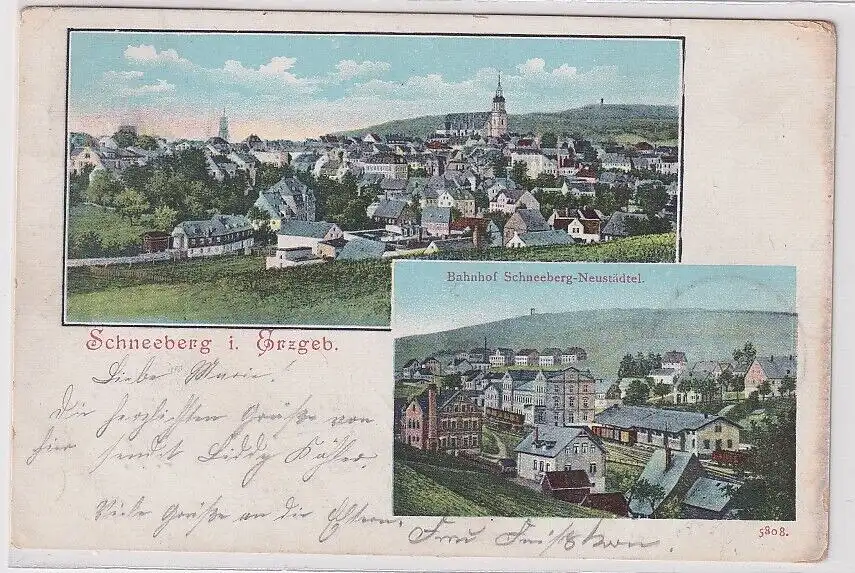 Bahnhof Schneeberg-Neustädtel.
Schneeberg i. Erzgeb.
Liebe Marie!
Die herzlichsten Grüße von
hier sendet Liddy Köhler.
Viele Grüße an die Eltern.
Frau
5808.